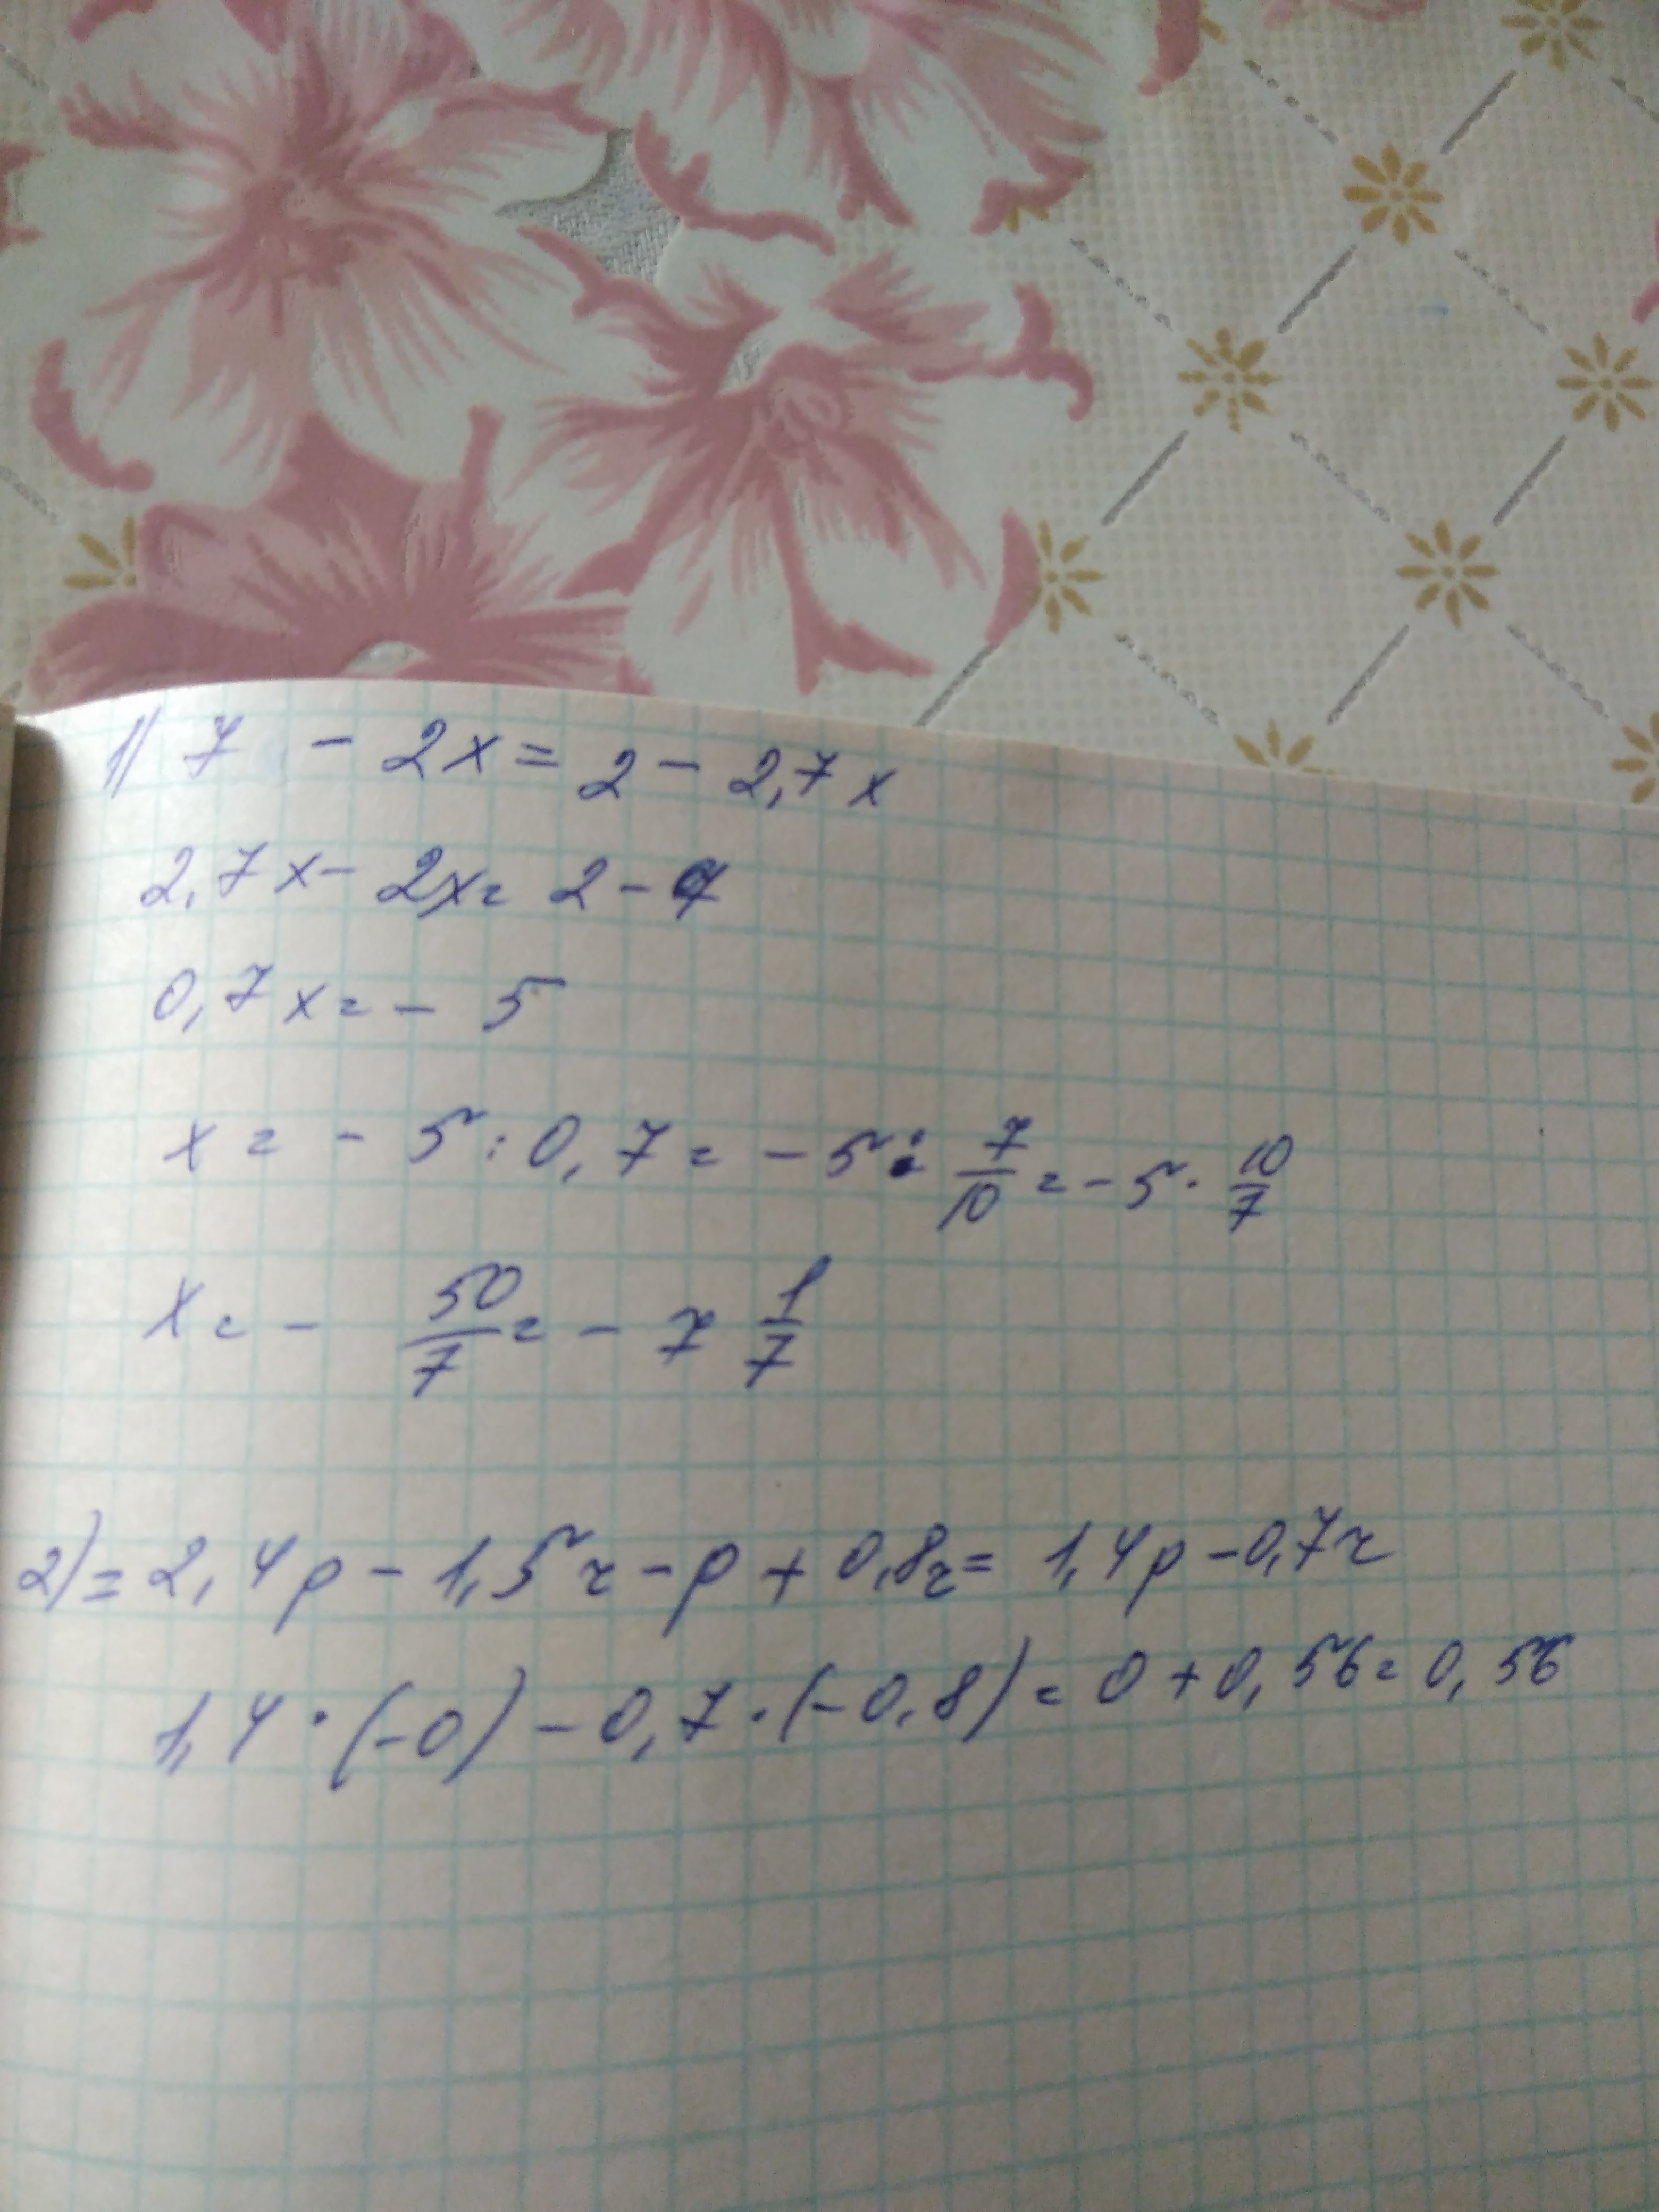 1) 7 - 2x = 2 - 2,7x
2,7x - 2x = 2 - 7
0,7x = - 5
x = - 5 : 0,7 = - 5 : 7/10 = - 5 · 10/7
x = - 50/7 = - 7 1/7
2) = 2,4p - 1,5r - p + 0,8r = 1,4p - 0,7r
1,4 · (-0) - 0,7 · (-0,8) = 0 + 0,56 = 0,56